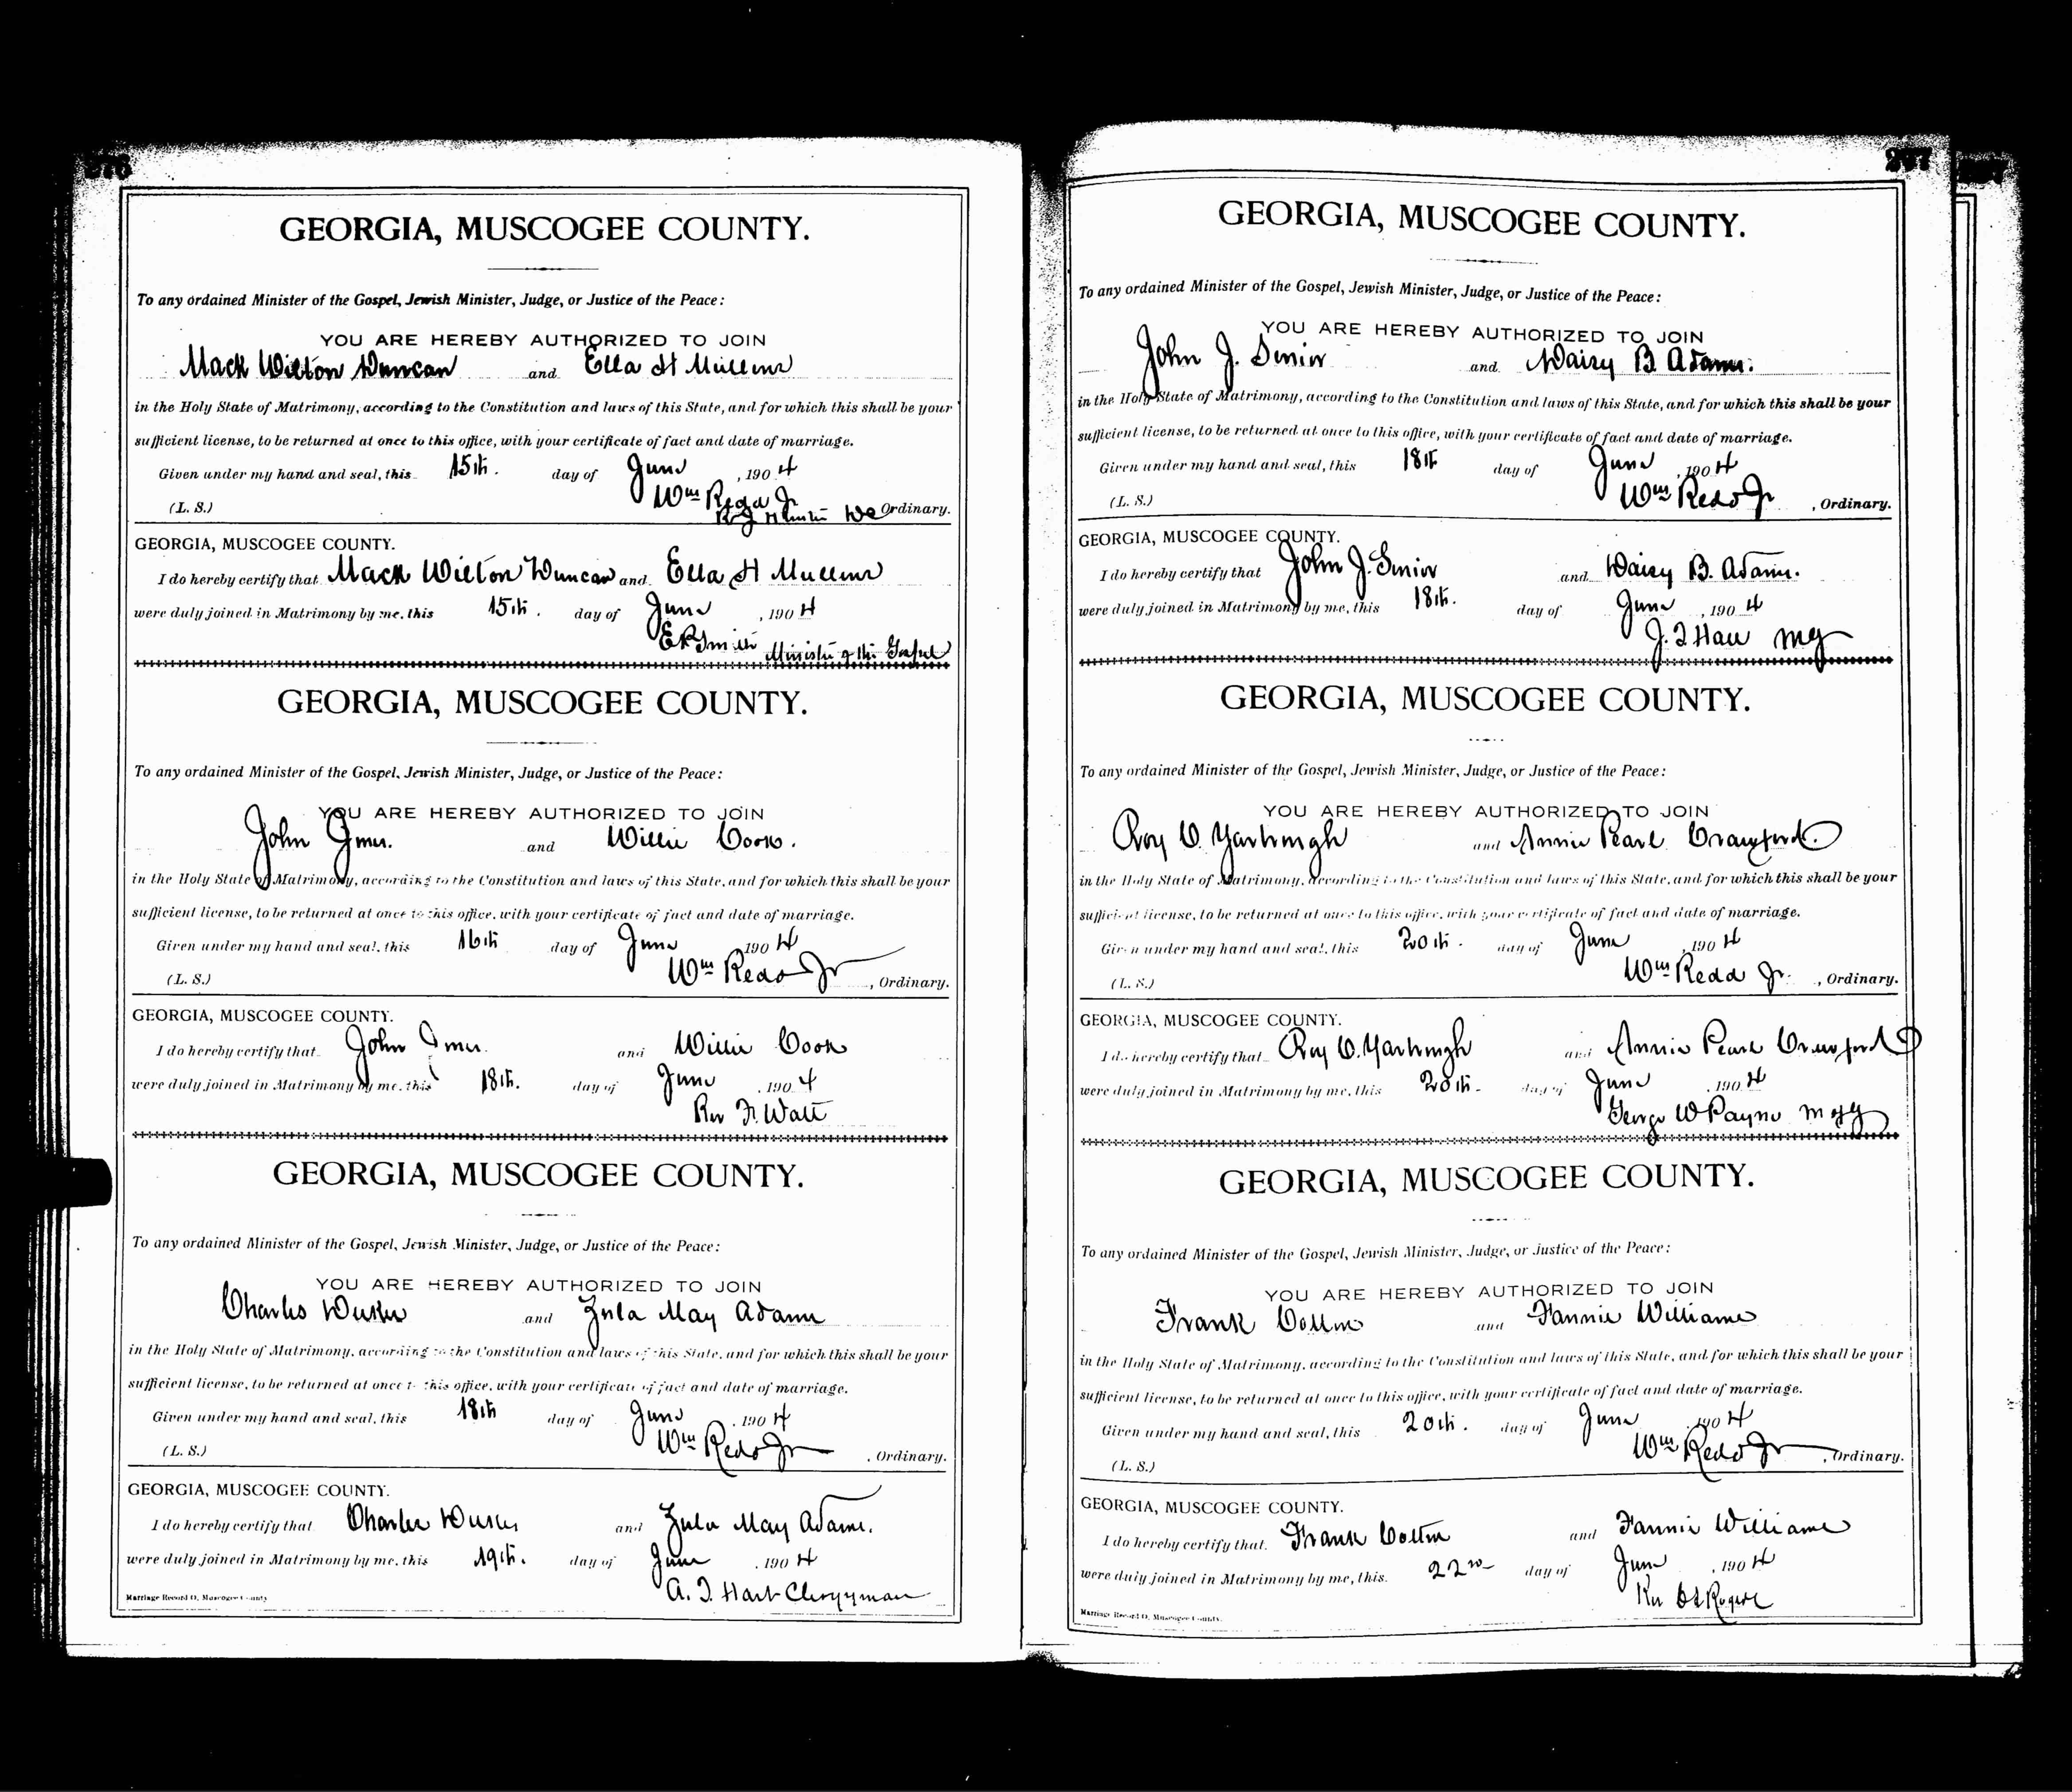 GEORGIA, MUSCOGEE COUNTY.
To any ordained Minister of the Gospel, Jewish Minister, Judge, or Justice of the Peace:
YOU ARE HEREBY AUTHORIZED TO JOIN
Mack Wilton Duncan and Ella H Mullens
in the Holy State of Matrimony, according to the Constitution and laws of this State, and for which this shall be your
sufficient license, to be returned at once to this office, with your certificate of fact and date of marriage.
Given under my hand and seal, this 15th. day of June, 1904
Wm Redd Jr
(L. S.) Ordinary.
GEORGIA, MUSCOGEE COUNTY.
I do hereby certify that Mack Wilton Duncan and Ella H Mullens
were duly joined in Matrimony by me, this 15th. day of June, 1904
E R Smith Minister of the Gospel
GEORGIA, MUSCOGEE COUNTY.
To any ordained Minister of the Gospel, Jewish Minister, Judge, or Justice of the Peace:
YOU ARE HEREBY AUTHORIZED TO JOIN
John and Willie Cook.
in the Holy State of Matrimony, according to the Constitution and laws of this State, and for which this shall be your
sufficient license, to be returned at once to this office, with your certificate of fact and date of marriage.
Given under my hand and seal, this 16th day of June 1904
Wm Redd Jr
(L. S.) , Ordinary.
GEORGIA, MUSCOGEE COUNTY.
I do hereby certify that John and Willie Cook
were duly joined in Matrimony by me, this 18th. day of June, 1904
Rev F. Watt
GEORGIA, MUSCOGEE COUNTY.
To any ordained Minister of the Gospel, Jewish Minister, Judge, or Justice of the Peace:
YOU ARE HEREBY AUTHORIZED TO JOIN
Charles and Zula May Adams
in the Holy State of Matrimony, according to the Constitution and laws of this State, and for which this shall be your
sufficient license, to be returned at once to this office, with your certificate of fact and date of marriage.
Given under my hand and seal, this 18th day of June, 1904
Wm Redd Jr
(L. S.) , Ordinary.
GEORGIA, MUSCOGEE COUNTY.
I do hereby certify that Charles and Zula May Adams.
were duly joined in Matrimony by me, this 19th. day of June, 1904
A. T. Hart Clergyman
Marriage Record O, Muscogee County
GEORGIA, MUSCOGEE COUNTY.
To any ordained Minister of the Gospel, Jewish Minister, Judge, or Justice of the Peace:
YOU ARE HEREBY AUTHORIZED TO JOIN
John J. Senior and Daisy B Adams.
in the Holy State of Matrimony, according to the Constitution and laws of this State, and for which this shall be your
sufficient license, to be returned at once to this office, with your certificate of fact and date of marriage.
Given under my hand and seal, this 18th day of June, 1904
Wm Redd Jr
(L. S.) , Ordinary.
GEORGIA, MUSCOGEE COUNTY.
I do hereby certify that John J. Senior and Daisy B. Adams.
were duly joined in Matrimony by me, this 18th. day of June, 1904
MG
GEORGIA, MUSCOGEE COUNTY.
To any ordained Minister of the Gospel, Jewish Minister, Judge, or Justice of the Peace:
YOU ARE HEREBY AUTHORIZED TO JOIN
Roy C. Yarbrough and Annie Pearl Crawford
in the Holy State of Matrimony, according to the Constitution and laws of this State, and for which this shall be your
sufficient license, to be returned at once to this office, with your certificate of fact and date of marriage.
Given under my hand and seal, this 20th. day of June, 1904
Wm Redd Jr.
(L. S.) , Ordinary.
GEORGIA, MUSCOGEE COUNTY.
I do hereby certify that Roy C. Yarbrough and Annie Pearl Crawford
were duly joined in Matrimony by me, this 20th. day of June, 1904
George W Payne M of G
GEORGIA, MUSCOGEE COUNTY.
To any ordained Minister of the Gospel, Jewish Minister, Judge, or Justice of the Peace:
YOU ARE HEREBY AUTHORIZED TO JOIN
Frank and Fannie Williams
in the Holy State of Matrimony, according to the Constitution and laws of this State, and for which this shall be your
sufficient license, to be returned at once to this office, with your certificate of fact and date of marriage.
Given under my hand and seal, this 20th. day of June, 1904
Wm Redd Jr
(L. S.) , Ordinary.
GEORGIA, MUSCOGEE COUNTY.
I do hereby certify that Frank and Fannie Williams
were duly joined in Matrimony by me, this 22nd day of June, 1904
Rev Rogers
Marriage Record O, Muscogee County.